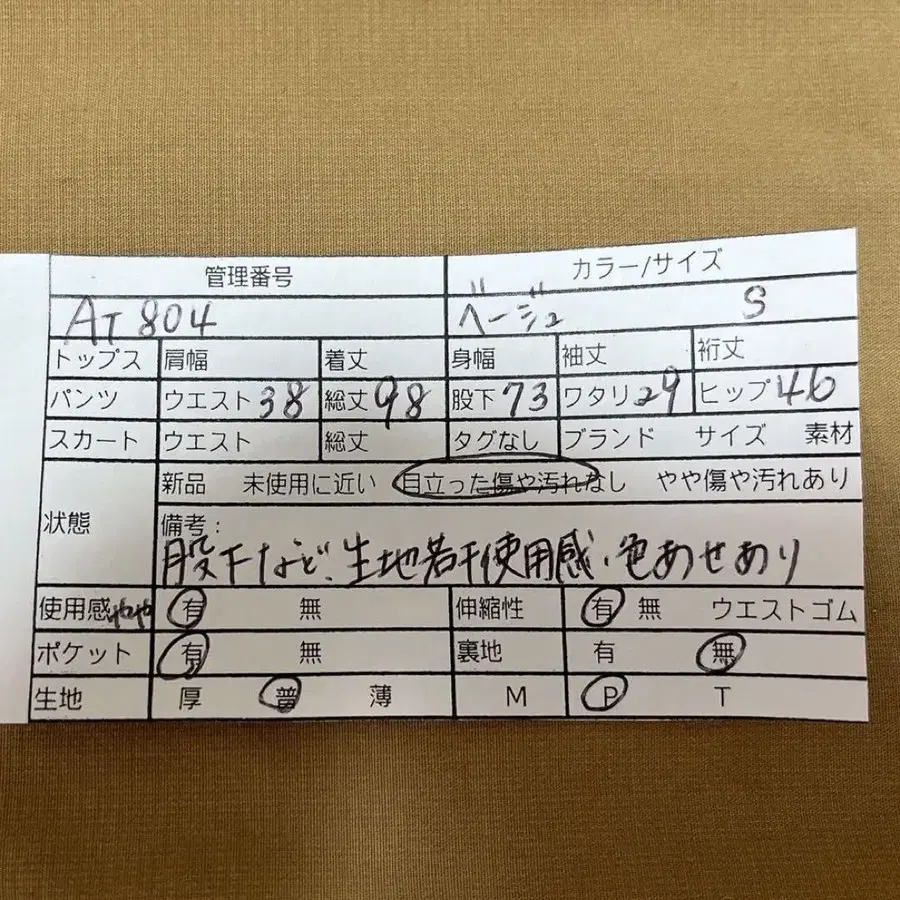 管理番号 カラー/サイズ
AT 804 ベージュ S
トップス 肩幅 着丈 身幅 袖丈 裄丈
パンツ ウエスト 38 総丈 98 股下 73 ワタリ 29 ヒップ 46
スカート ウエスト 総丈 タグなし ブランド サイズ 素材
状態 新品 未使用に近い 目立った傷や汚れなし やや傷や汚れあり
備考:
股下など、生地若干使用感、色あせあり
使用感 やや 有 無 伸縮性 有 無 ウエストゴム
ポケット 有 無 裏地 有 無
生地 厚 普 薄 M P T